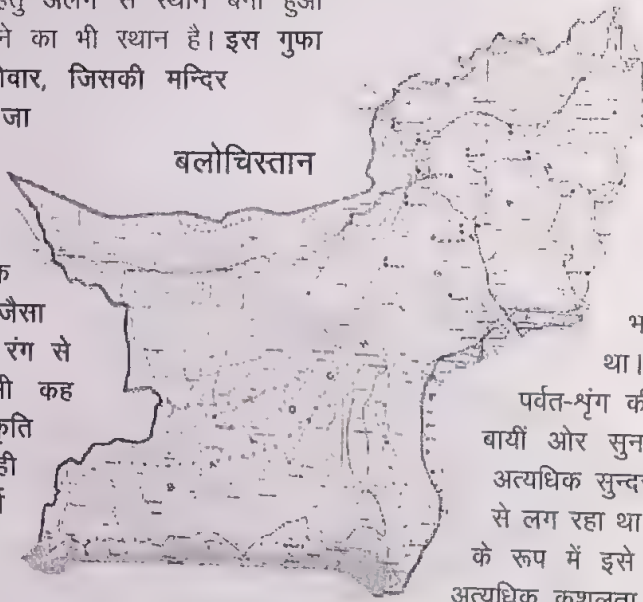 अलग से स्थान बना हुआ
ने का भी स्थान है। इस गुफा
जिसकी मन्दिर
जा
बलोचिस्तान
जैसा
रंग से
कह
था।
पर्वत-शृंग
बायीं ओर
अत्यधिक
से लग रहा था
के रूप में इसे
अत्यधिक कुशलता